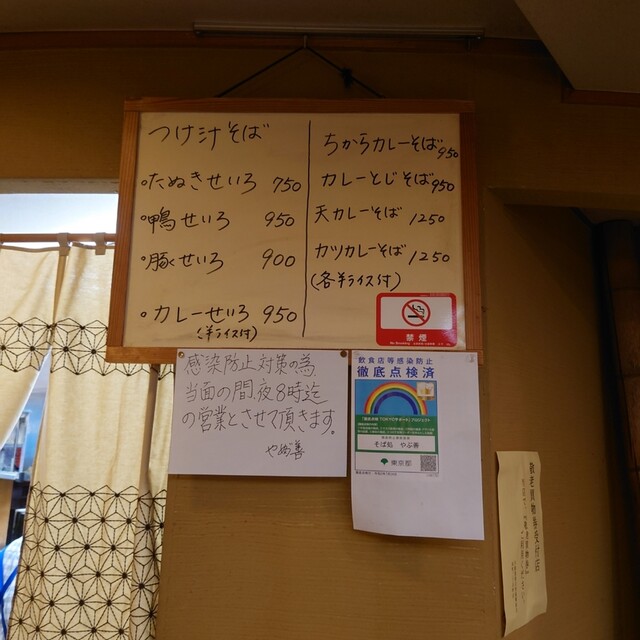 つけ汁そば
・たぬきせいろ 750
・鴨せいろ 950
・豚せいろ 900
・カレーせいろ 950
(半ライス付)
ちからカレーそば 950
カレーとじそば 950
天カレーそば 1250
カツカレーそば 1250
(各半ライス付)
禁煙
感染防止対策の為
当面の間、夜8時迄
の営業とさせて頂きます。
やぶ善
飲食店等感染防止
徹底点検済
そば処 やぶ善
東京都
敬老買物券受付店